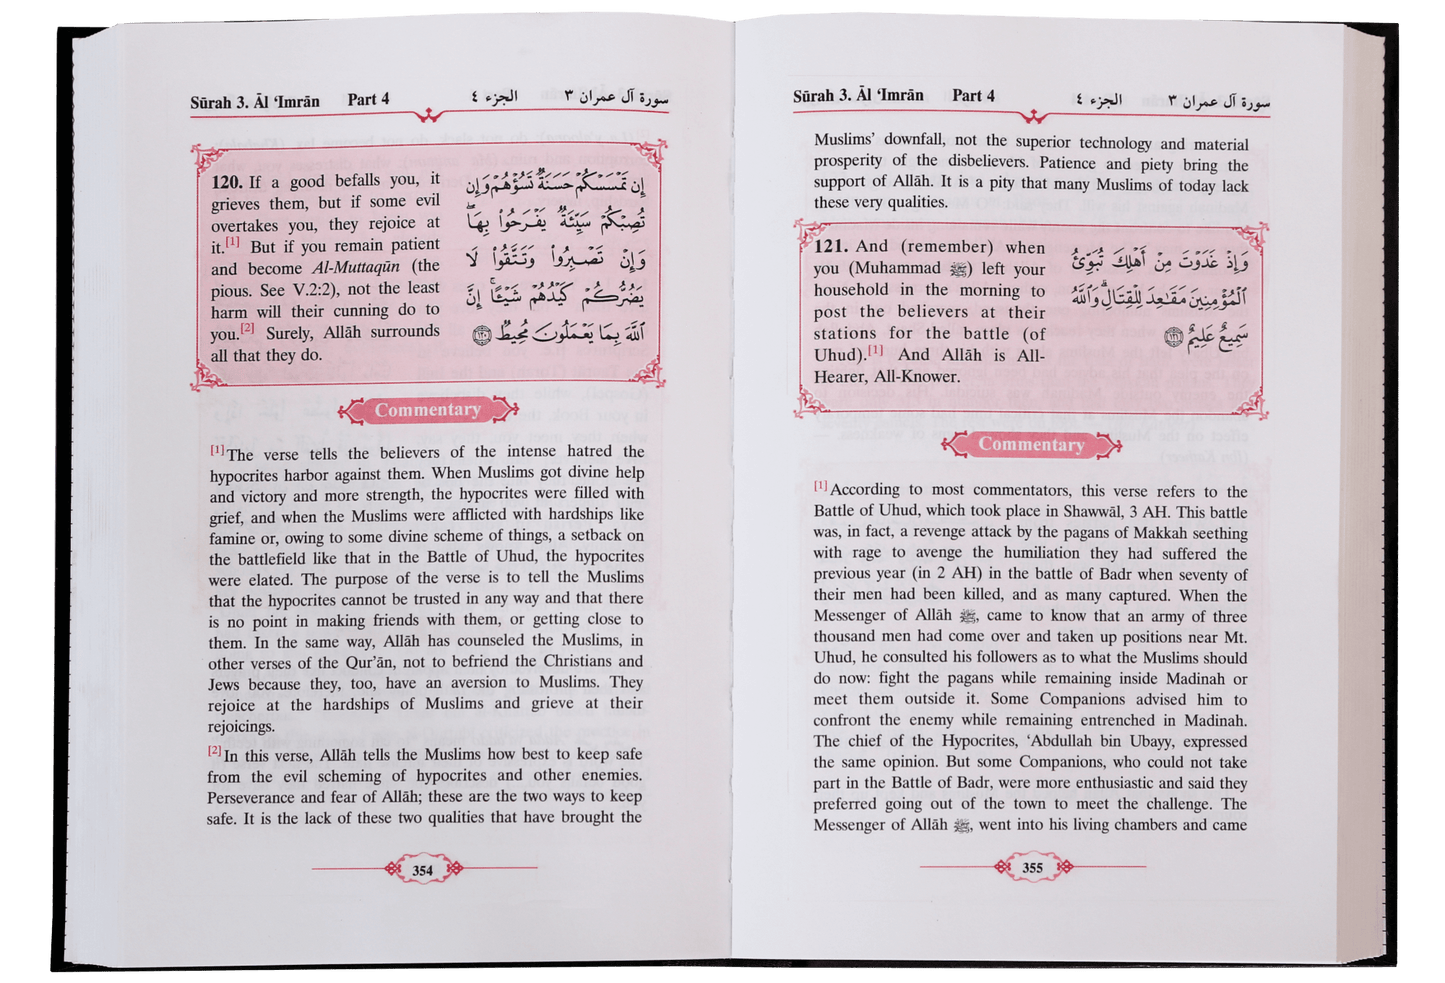 Sūrah 3. Āl ‘Imrān Part 4 الجزء ٤ سورة آل عمران ٣
120. If a good befalls you, it
grieves them, but if some evil
overtakes you, they rejoice at
it.[1] But if you remain patient
and become Al-Muttaqūn (the
pious. See V.2:2), not the least
harm will their cunning do to
you.[2] Surely, Allāh surrounds
all that they do.
إِن تَمْسَسْكُمْ حَسَنَةٌ تَسُؤْهُمْ وَإِن
تُصِبْكُمْ سَيِّئَةٌ يَفْرَحُوا۟ بِهَا ۖ
وَإِن تَصْبِرُوا۟ وَتَتَّقُوا۟ لَا
يَضُرُّكُمْ كَيْدُهُمْ شَيْـًٔا ۗ إِنَّ
ٱللَّهَ بِمَا يَعْمَلُونَ مُحِيطٌ ١٢٠
Commentary
[1] The verse tells the believers of the intense hatred the
hypocrites harbor against them. When Muslims got divine help
and victory and more strength, the hypocrites were filled with
grief, and when the Muslims were afflicted with hardships like
famine or, owing to some divine scheme of things, a setback on
the battlefield like that in the Battle of Uhud, the hypocrites
were elated. The purpose of the verse is to tell the Muslims
that the hypocrites cannot be trusted in any way and that there
is no point in making friends with them, or getting close to
them. In the same way, Allāh has counseled the Muslims, in
other verses of the Qur’ān, not to befriend the Christians and
Jews because they, too, have an aversion to Muslims. They
rejoice at the hardships of Muslims and grieve at their
rejoicings.
[2] In this verse, Allāh tells the Muslims how best to keep safe
from the evil scheming of hypocrites and other enemies.
Perseverance and fear of Allāh; these are the two ways to keep
safe. It is the lack of these two qualities that have brought the
354
Sūrah 3. Āl ‘Imrān Part 4 الجزء ٤ سورة آل عمران ٣
Muslims’ downfall, not the superior technology and material
prosperity of the disbelievers. Patience and piety bring the
support of Allāh. It is a pity that many Muslims of today lack
these very qualities.
121. And (remember) when
you (Muhammad ﷺ) left your
household in the morning to
post the believers at their
stations for the battle (of
Uhud).[1] And Allāh is All-
Hearer, All-Knower.
وَإِذْ غَدَوْتَ مِنْ أَهْلِكَ تُبَوِّئُ
ٱلْمُؤْمِنِينَ مَقَـٰعِدَ لِلْقِتَالِ ۗ وَٱللَّهُ
سَمِيعٌ عَلِيمٌ ١٢١
Commentary
[1] According to most commentators, this verse refers to the
Battle of Uhud, which took place in Shawwāl, 3 AH. This battle
was, in fact, a revenge attack by the pagans of Makkah seething
with rage to avenge the humiliation they had suffered the
previous year (in 2 AH) in the battle of Badr when seventy of
their men had been killed, and as many captured. When the
Messenger of Allāh ﷺ, came to know that an army of three
thousand men had come over and taken up positions near Mt.
Uhud, he consulted his followers as to what the Muslims should
do now: fight the pagans while remaining inside Madinah or
meet them outside it. Some Companions advised him to
confront the enemy while remaining entrenched in Madinah.
The chief of the Hypocrites, ‘Abdullah bin Ubayy, expressed
the same opinion. But some Companions, who could not take
part in the Battle of Badr, were more enthusiastic and said they
preferred going out of the town to meet the challenge. The
Messenger of Allāh ﷺ, went into his living chambers and came
355